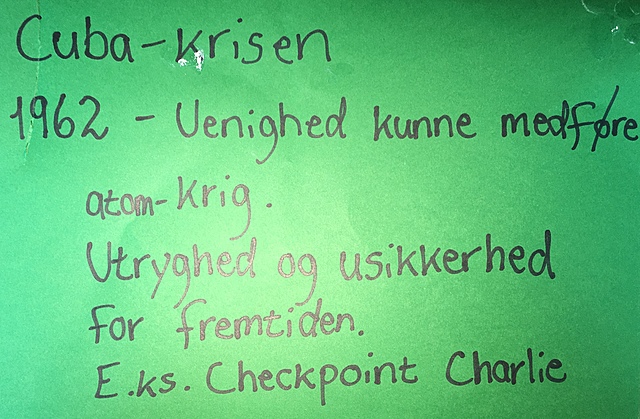 Cuba-krisen
1962 - Uenighed kunne medføre
atom-krig.
Utryghed og usikkerhed
for fremtiden.
E.ks. Checkpoint Charlie